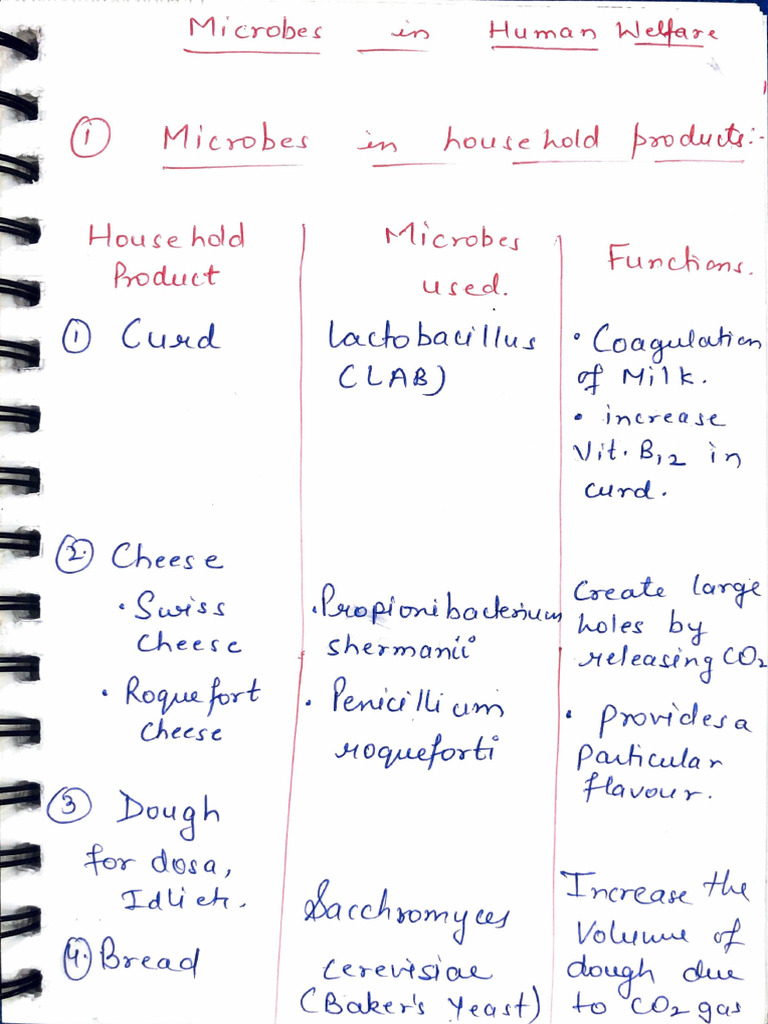 Microbes in Human Welfare
① Microbes in household products:-
Household Product
Microbes used.
Functions.
① Curd
Lactobacillus
(LAB)
• Coagulation
of Milk.
• increase
Vit. B12 in
curd.
② Cheese
• Swiss
cheese
• Propionibacterium
shermanii
Create large
holes by
releasing CO2
• Roquefort
cheese
• Penicillium
roqueforti
• Provides a
particular
flavour.
③ Dough
for dosa,
Idli etc.
④ Bread
Sacchromyces
cerevisiae
(Baker's Yeast)
Increase the
Volume of
dough due
to CO2 gas